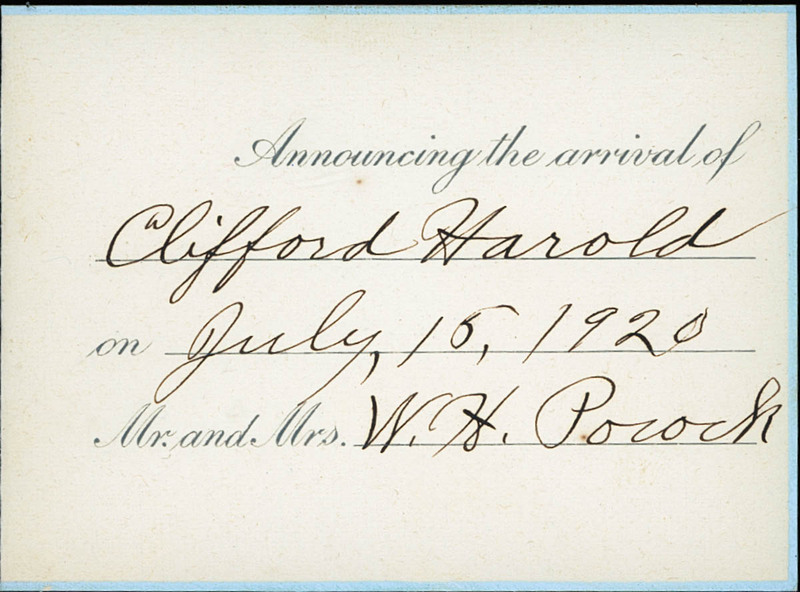 Announcing the arrival of
Clifford Harold
on July, 15, 1920
Mr. and Mrs. W. H. Pocock